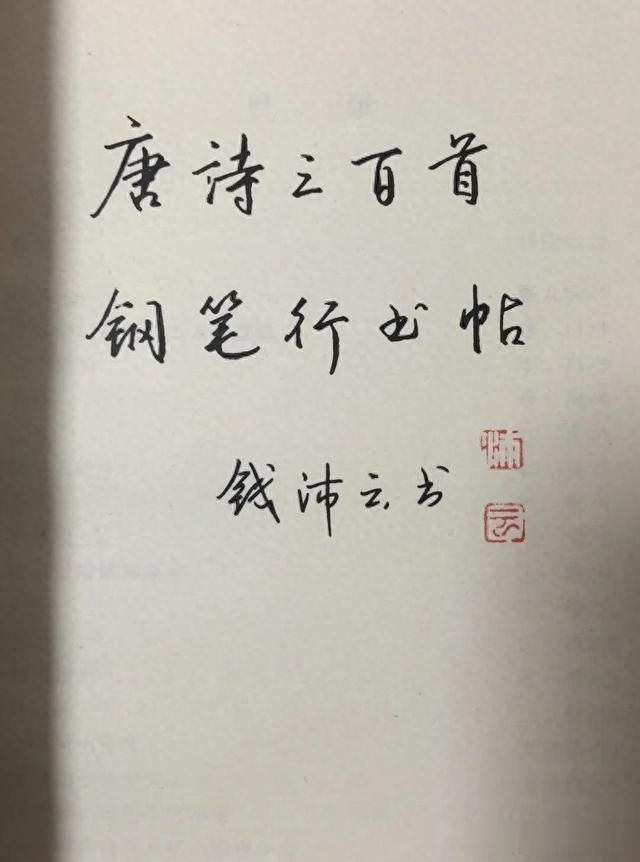 唐诗三百首
钢笔行书帖
钱沛云书
沛
云